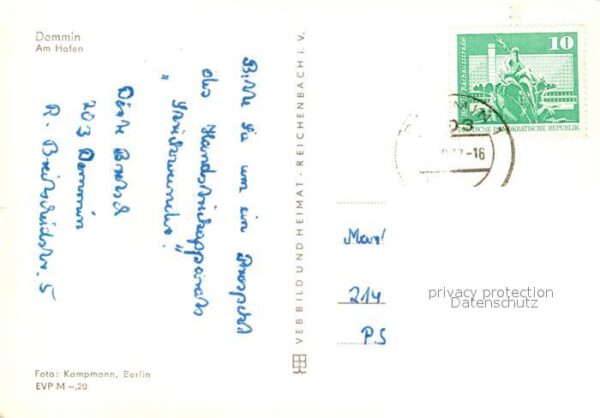 Demmin
Am Hafen
Bitte Sie um ein Prospekt
des Handstrickapparates
"
Dieter
203 Demmin
R. Breitscheidstr. 5
VEB BILD UND HEIMAT · REICHENBACH i. V.
10
Berlin, Rathausstraße
DEUTSCHE DEMOKRATISCHE REPUBLIK
-16
214
PS
privacy protection
Datenschutz
Foto: Kampmann, Berlin
EVP M –,20